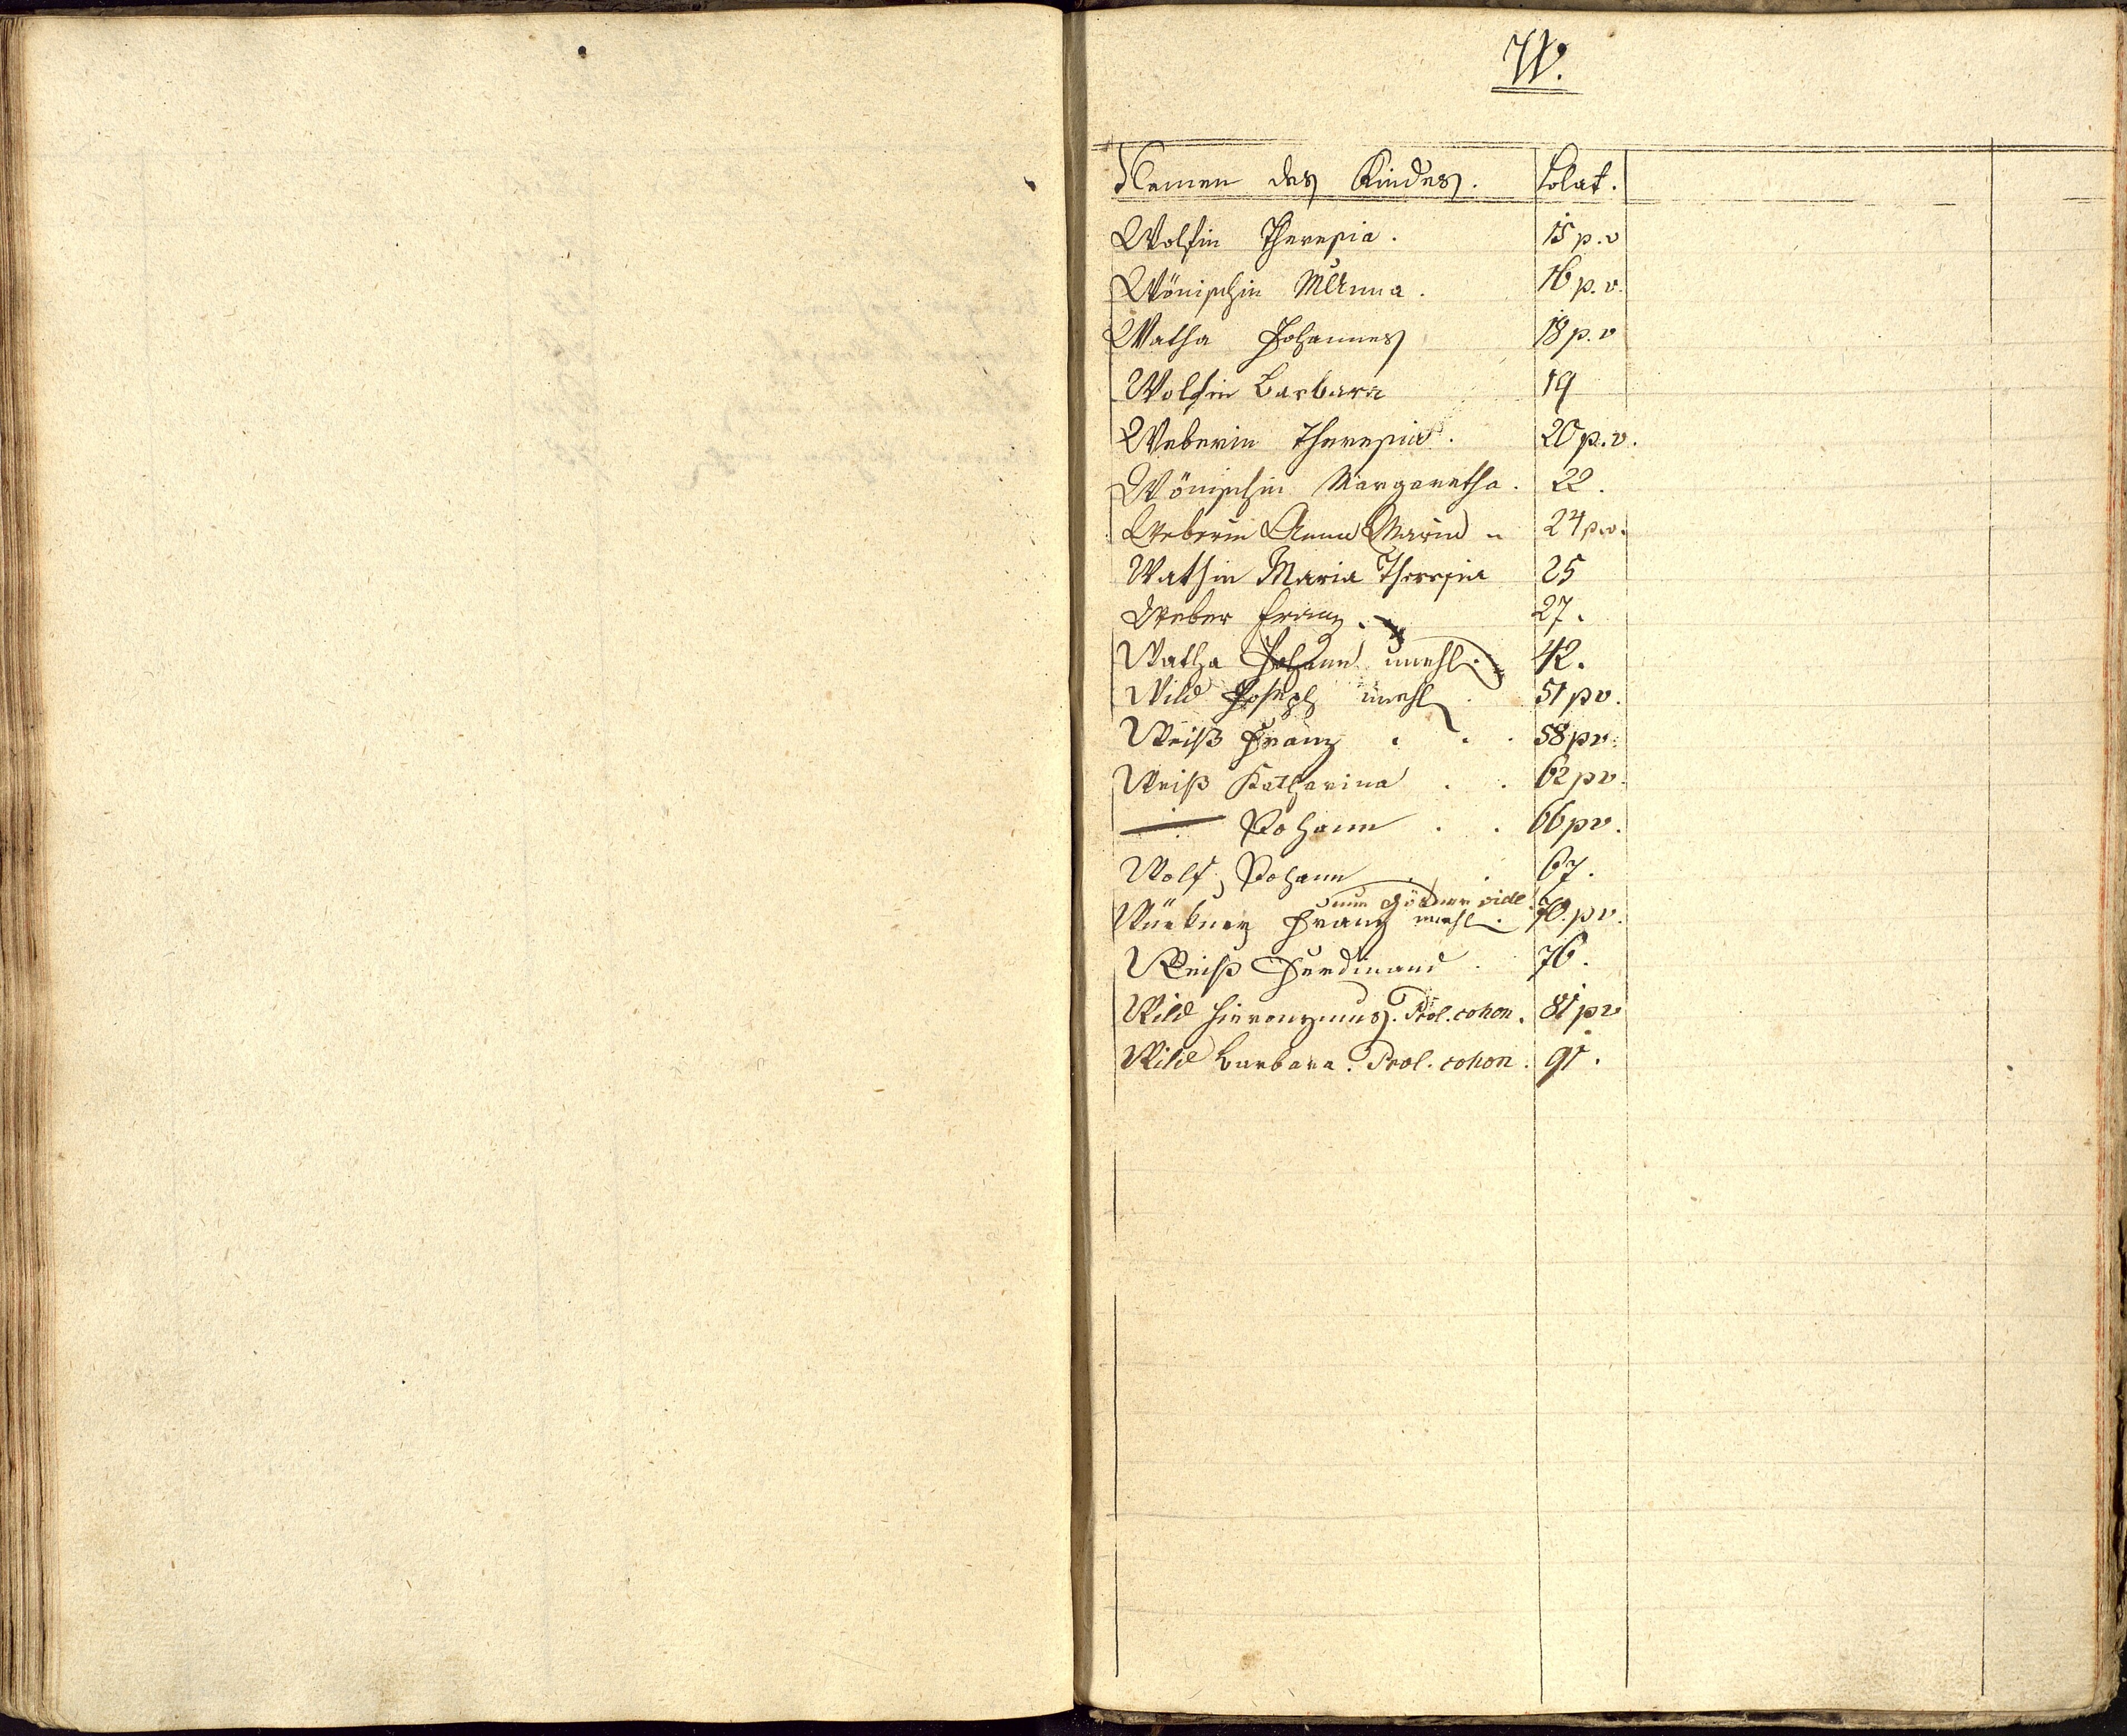 W.
Namen des Kindes. Folat.
Wolfin Theresia. 15 p. v
Wönischin M Anna. 16 p. v.
Watha Johannes 18 p. v
Wolfin Barbara 19
Weberin Theresia. 20 p. v.
Wönischin Margaretha. 22.
Weberin Anna Maria 24 p. v.
Wathin Maria Theresia 25
Weber Franz. 27.
Watha Johann unehl. 42.
Wild Joseph unehl 51 pv.
Weiß Franz . . . 58 pv.
Weiß Katharina . . 62 pv.
— Johann . . 66 pv.
Wolf, Johann . . 67.
nun vide
Franz unehl. 70. pv.
Weiß Ferdinand . 76.
Wild Hieronymus. Prol. cohon. 81 pv
Wild Barbara. Prol. cohon. 91.